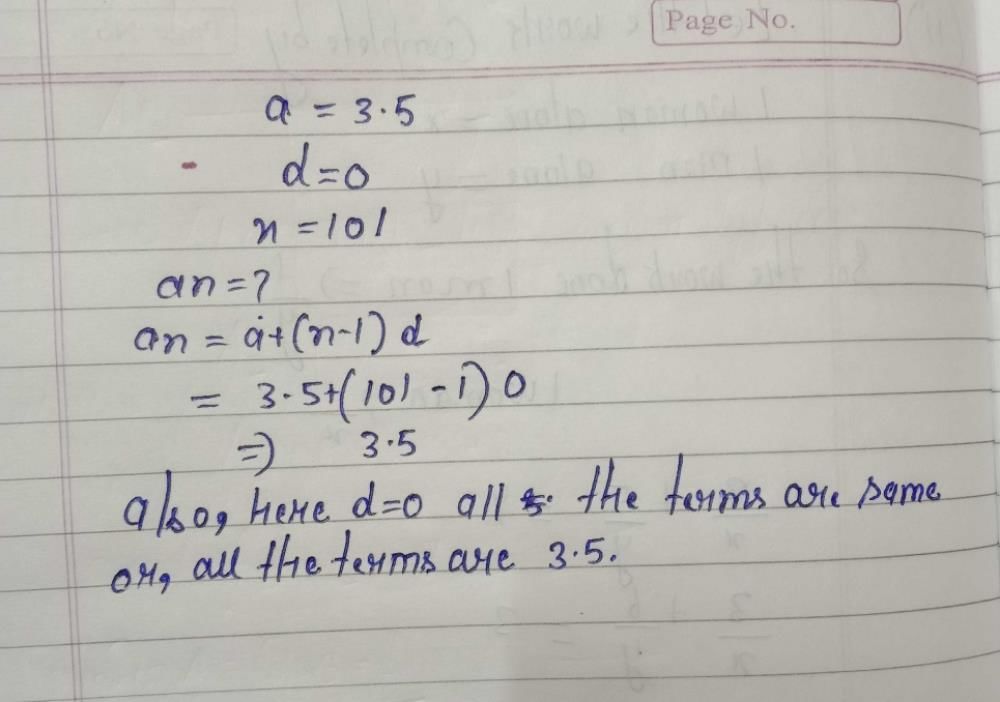 Page No.
a = 3.5
d=0
n = 101
an = ?
an = a+(n-1) d
= 3.5+(101-1) 0
=) 3.5
also, here d=0 all the terms are same
or, all the terms are 3.5.